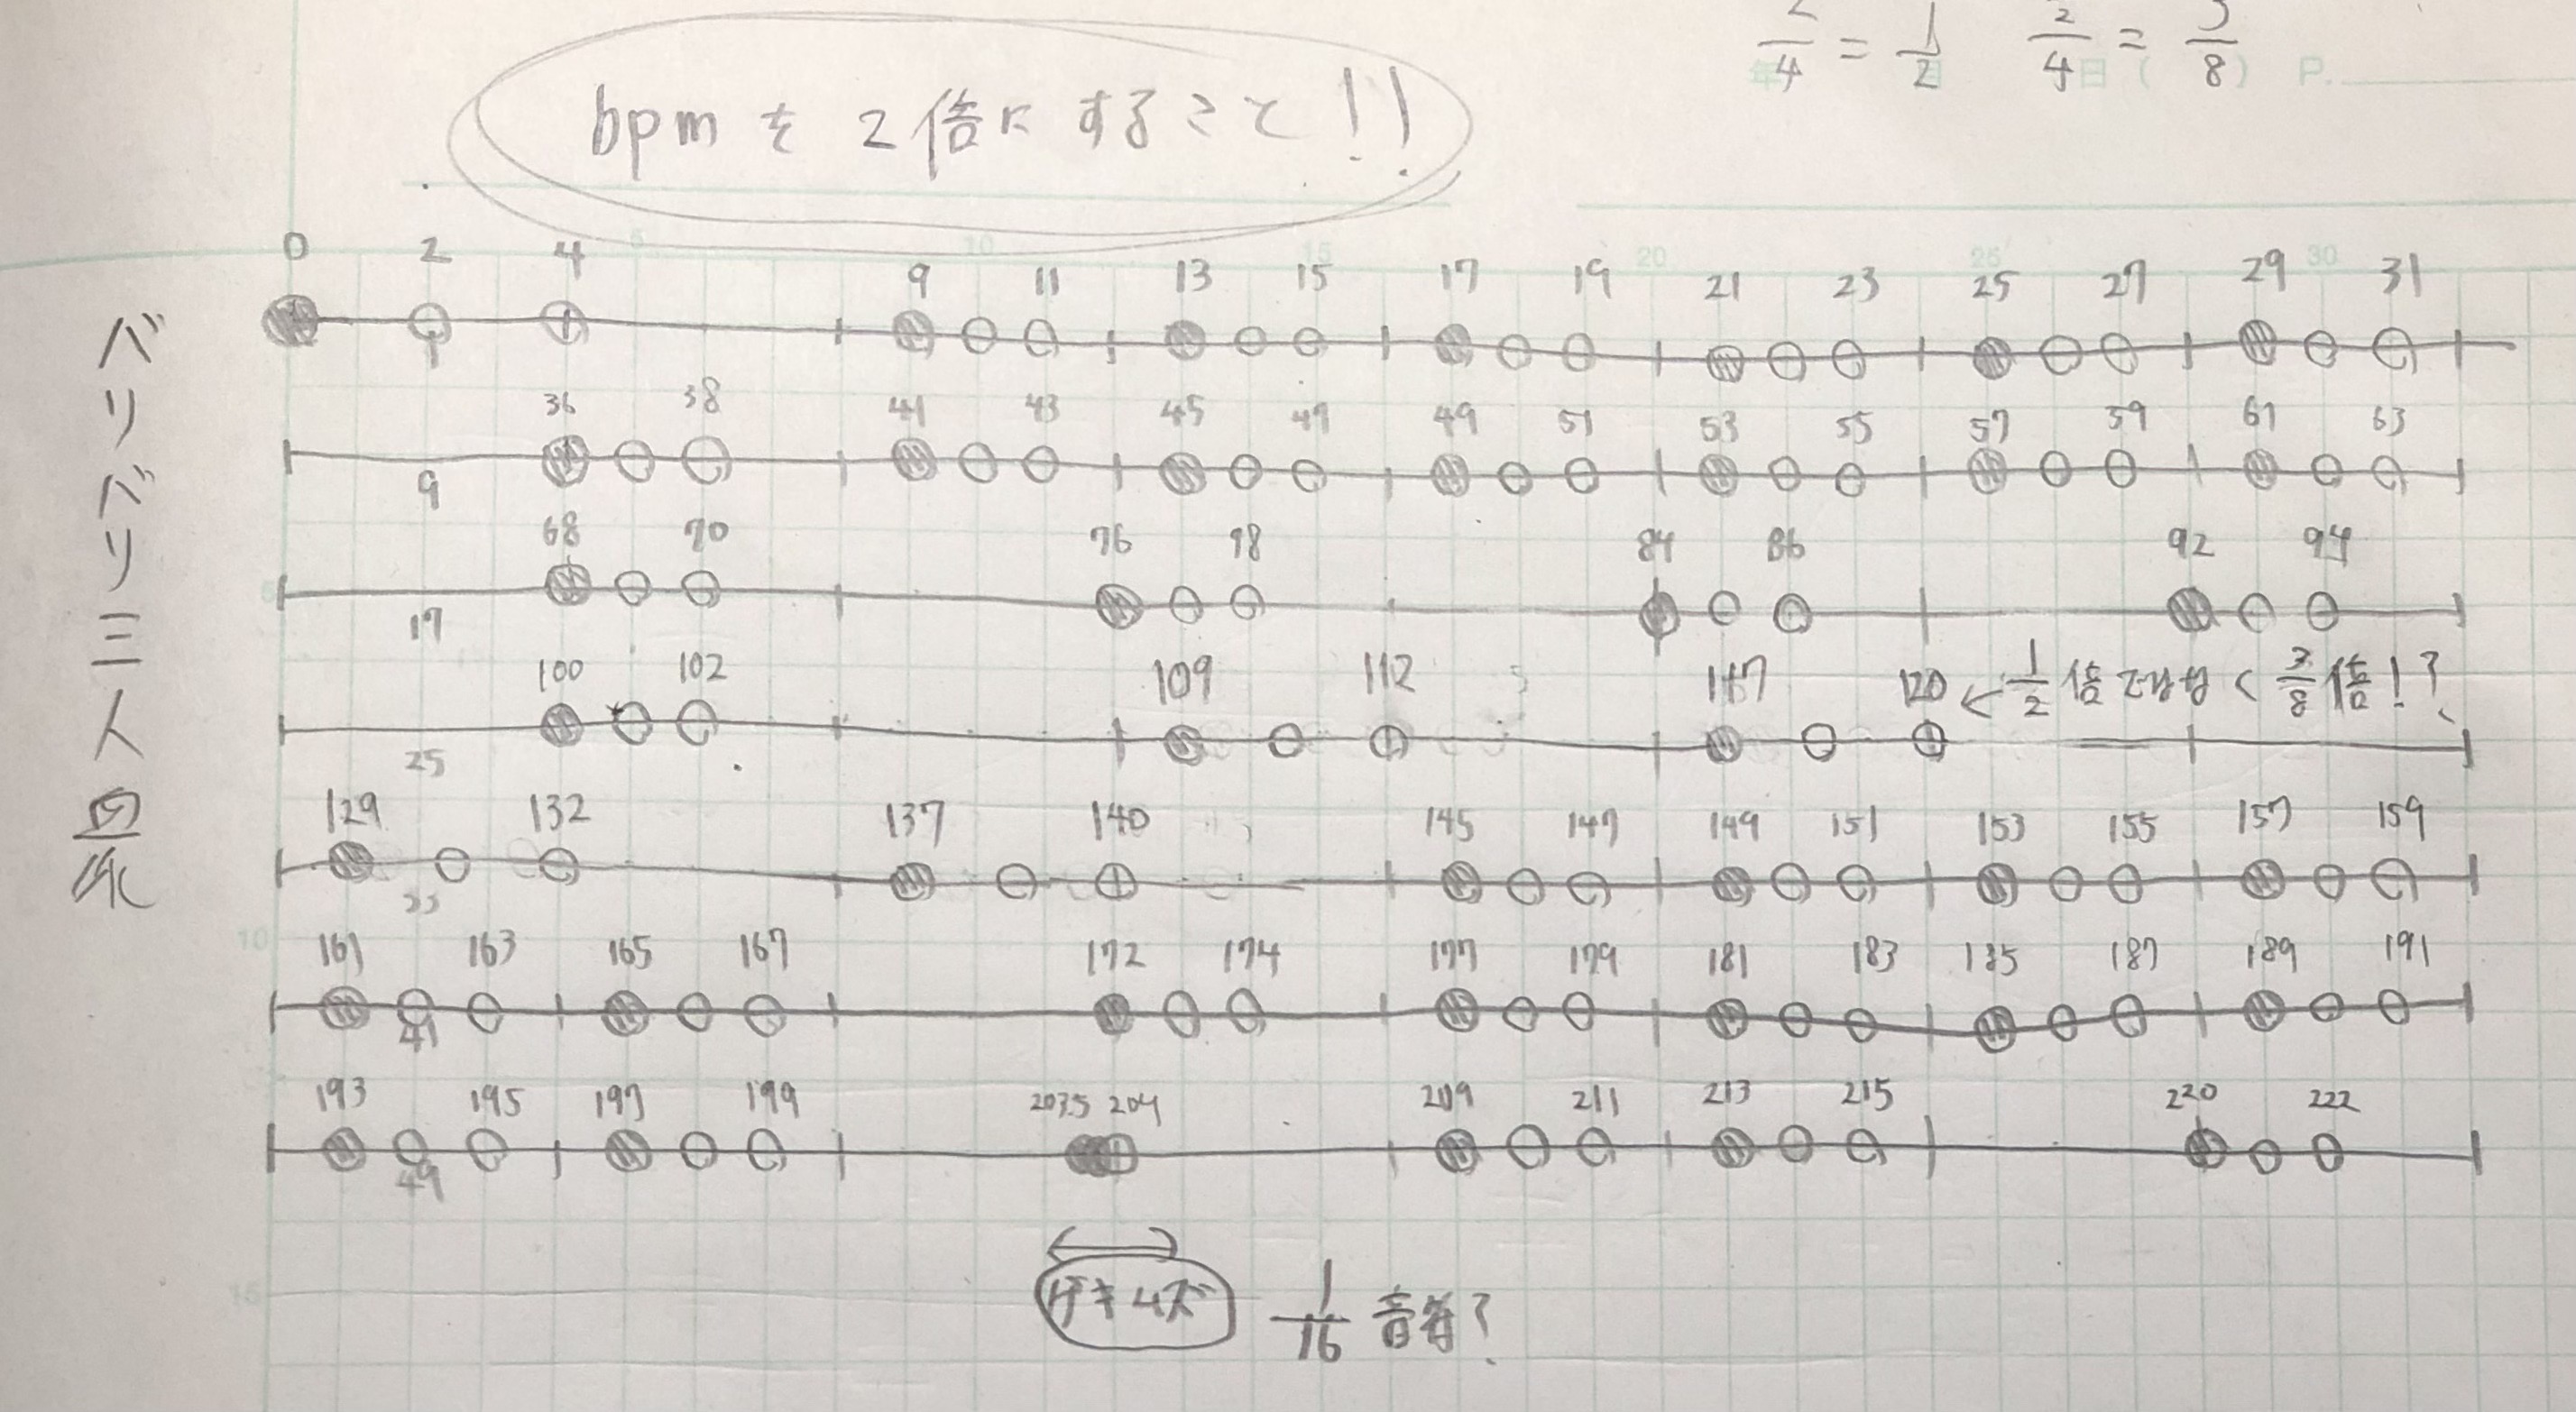 bpmを2倍にすること!!
/4 = 1/2 /4 = /8
年 月 日( ) P.
バリバリ三人
5 10 15 20 25 30
0 2 4 9 11 13 15 17 19 21 23 25 27 29 31
1
36 38 41 43 45 47 49 51 53 55 57 59 61 63
9
68 70 76 78 84 86 92 94
17
100 102 109 112 117 120 ← 1/2倍ではなく3/8倍!?
25
129 132 137 140 145 147 149 151 153 155 157 159
33
10
161 163 165 167 172 174 177 179 181 183 185 187 189 191
41
193 195 197 199 203.5 204 209 211 213 215 220 222
49
15
1/16 音符?